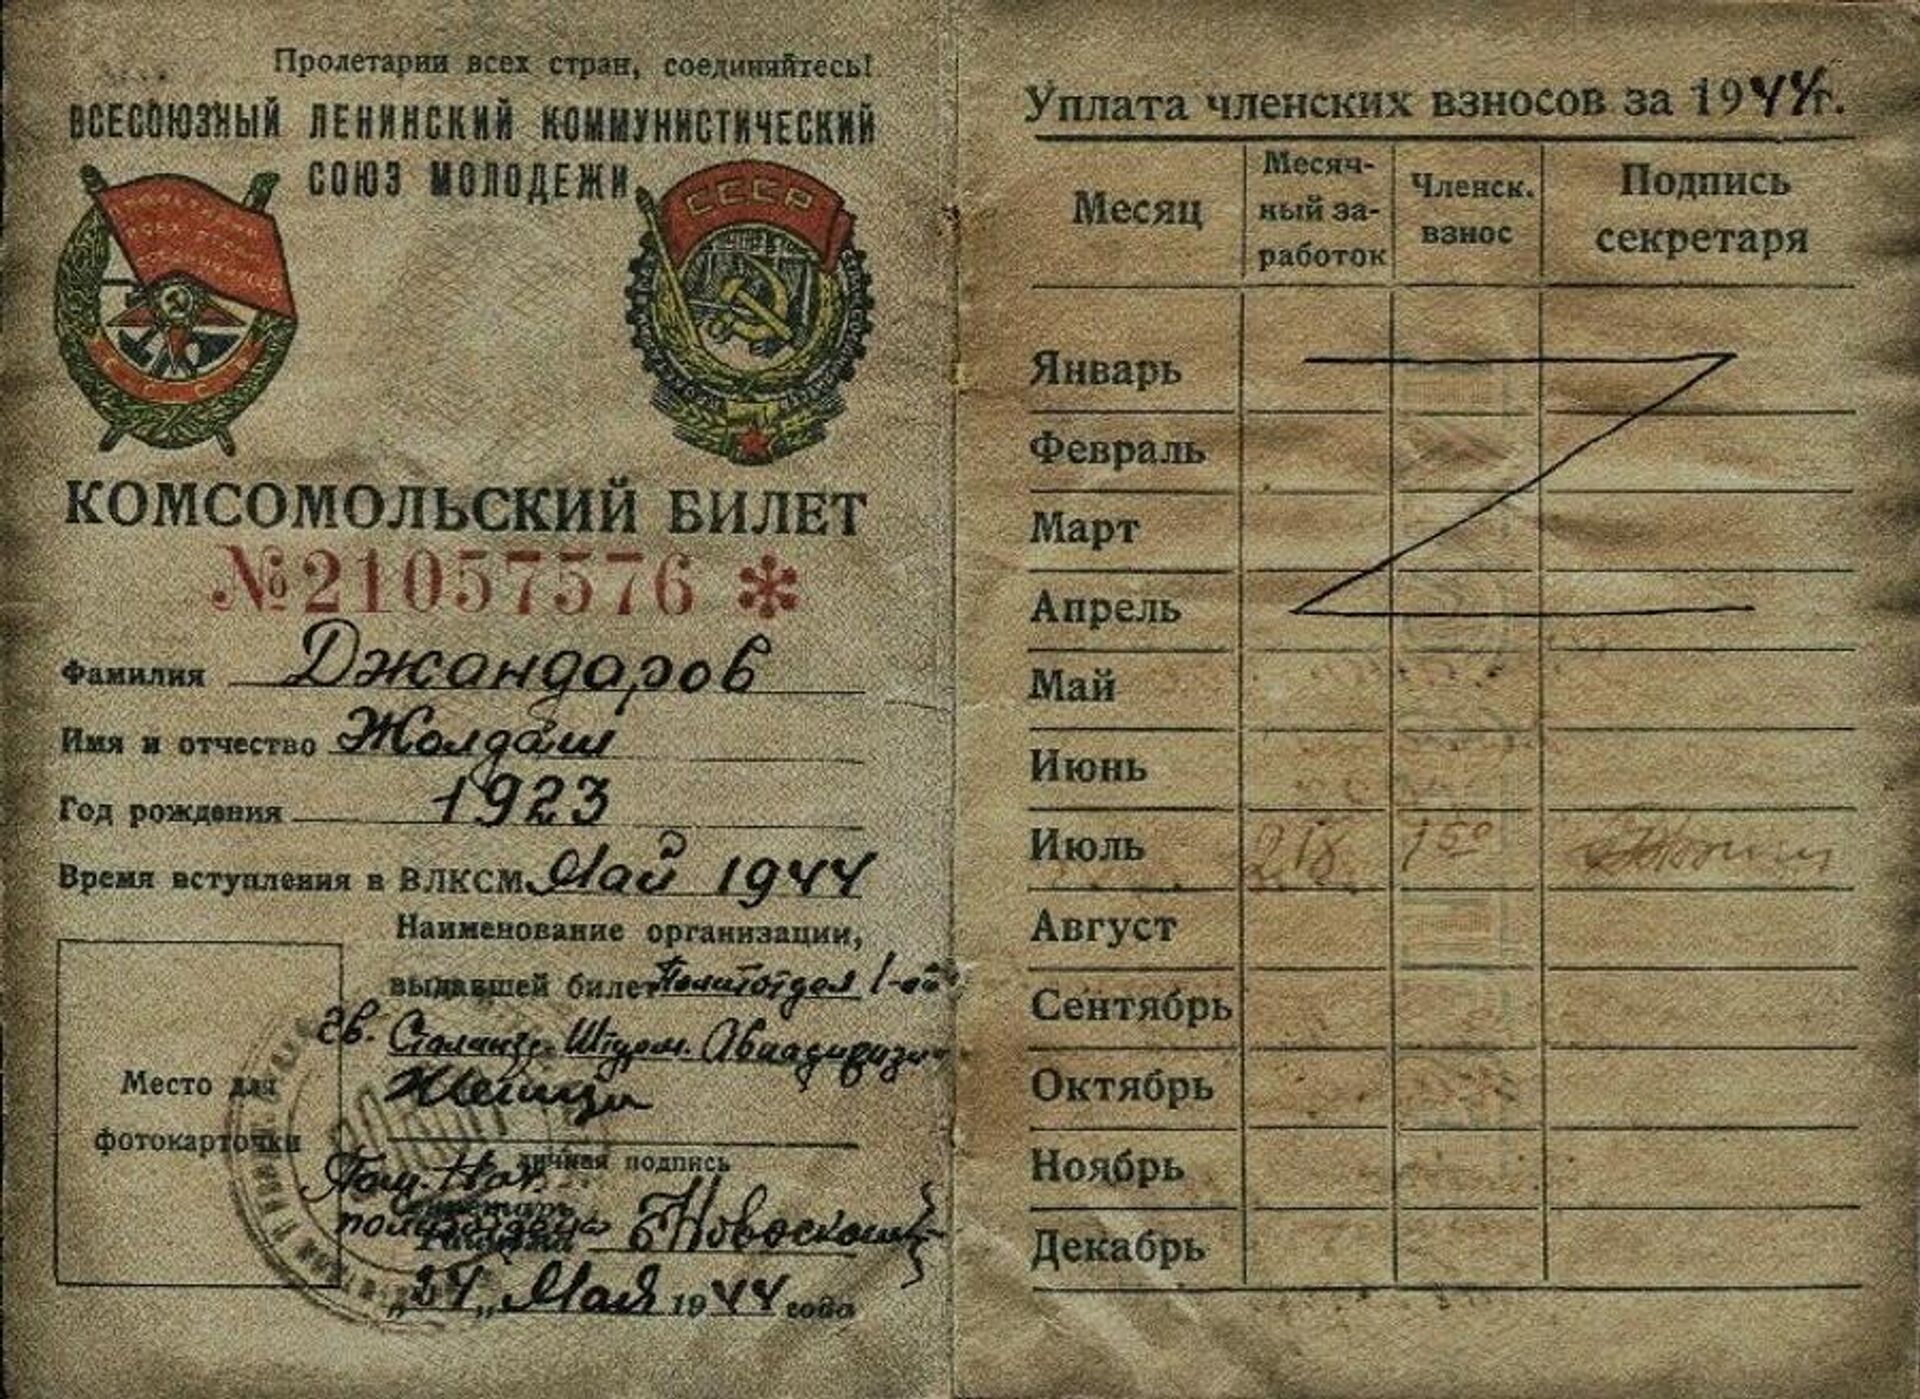 Пролетарии всех стран, соединяйтесь!
ВСЕСОЮЗНЫЙ ЛЕНИНСКИЙ КОММУНИСТИЧЕСКИЙ
СОЮЗ МОЛОДЕЖИ
СССР
КОМСОМОЛЬСКИЙ БИЛЕТ
№ 21057576 *
Фамилия Джандаров
Имя и отчество Жолдаш
Год рождения 1923
Время вступления в ВЛКСМ Май 1944
Наименование организации,
выдавшей билет Политотдел 1-ой
гв. Сталингр. Штурм. Авиадивизии
Место для
фотокарточки
личная подпись
Пом. Нач.
политотдела
Секретарь
"24" Мая 1944 года
Уплата членских взносов за 1944г.
Месяц
Месяч-
ный за-
работок
Членск.
взнос
Подпись
секретаря
Январь
Февраль
Март
Апрель
Май
Июнь
Июль 218 1 50
Август
Сентябрь
Октябрь
Ноябрь
Декабрь